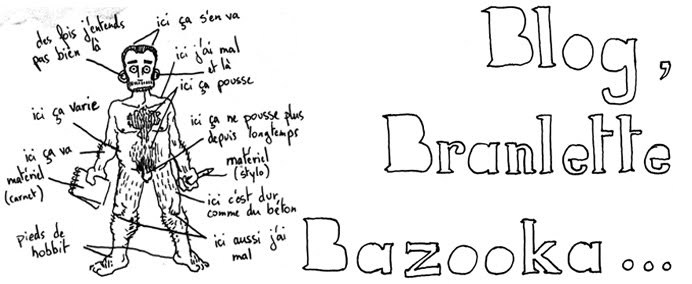 des fois j'entends
pas bien là
ici ça s'en va
ici j'ai mal
et là
ici ça pousse
ici ça varie
ici ça ne pousse plus
depuis longtemps
ici ça va
matériel
(carnet)
matériel
(stylo)
ici c'est dur
comme du béton
pieds de
hobbit
ici aussi j'ai
mal
Blog,
Branlette
Bazooka...